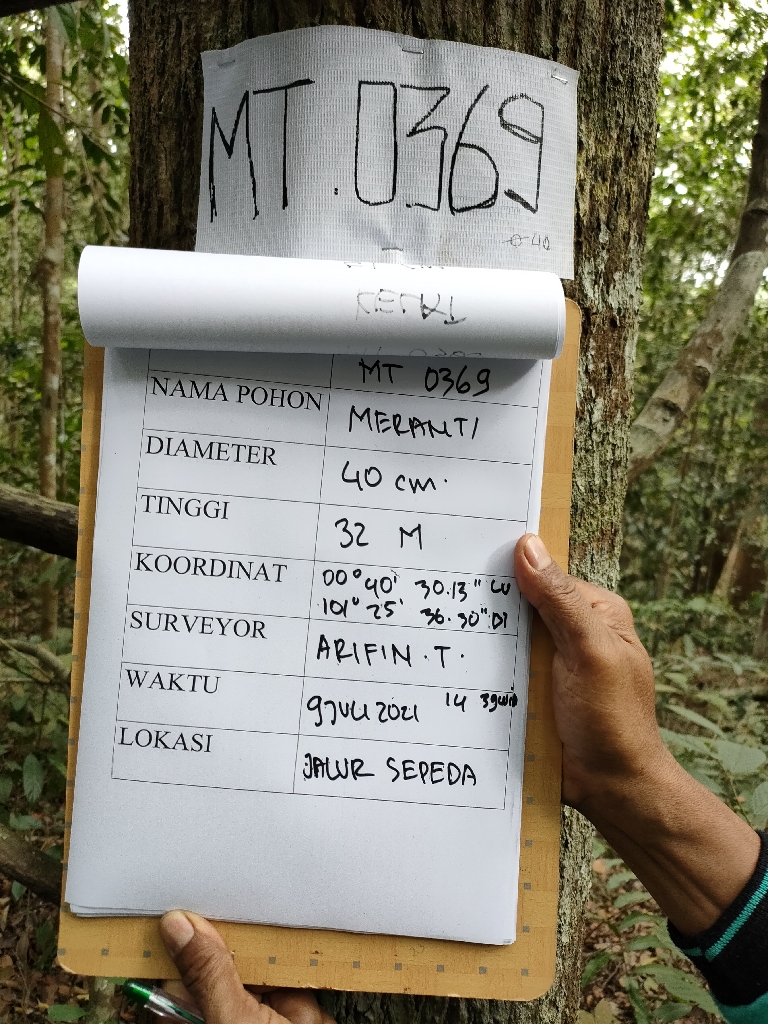 MT.0369
ø 40
MT 0369
NAMA POHON MERANTI
DIAMETER 40 cm.
TINGGI 32 M
KOORDINAT 00° 40' 30.13" LU
101° 25' 36.30" DT
SURVEYOR ARIFIN.T.
WAKTU 9 JULI 2021 14 39 WIB
LOKASI JALUR SEPEDA